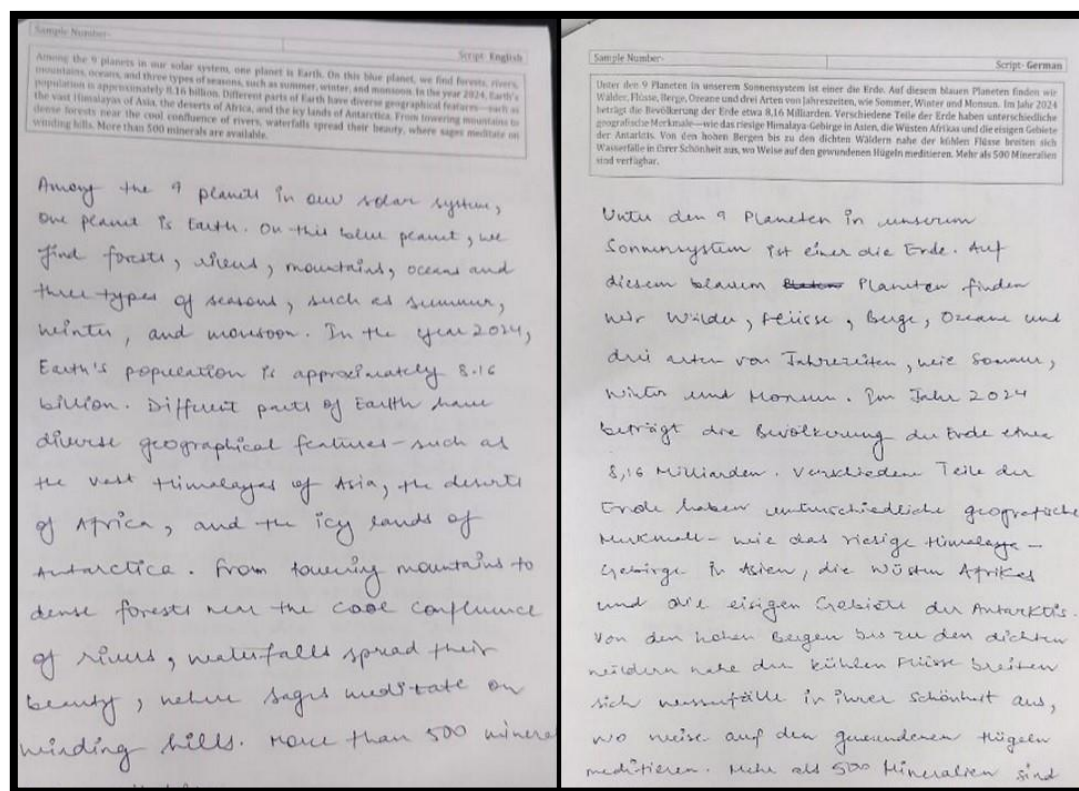 Sample Number-
Script- English
Among the 9 planets in our solar system, one planet is Earth. On this blue planet, we find forests, rivers,
mountains, oceans, and three types of seasons, such as summer, winter, and monsoon. In the year 2024, Earth's
population is approximately 8.16 billion. Different parts of Earth have diverse geographical features—such as
the vast Himalayas of Asia, the deserts of Africa, and the icy lands of Antarctica. From towering mountains to
dense forests near the cool confluence of rivers, waterfalls spread their beauty, where sages meditate on
winding hills. More than 500 minerals are available.
Among the 9 planets in our solar system,
one planet is Earth. On this blue planet, we
find forests, rivers, mountains, oceans and
three types of seasons, such as summer,
winter, and monsoon. In the year 2024,
Earth's population is approximately 8.16
billion. Different parts of Earth have
diverse geographical features - such as
the vast Himalayas of Asia, the deserts
of Africa, and the icy lands of
Antarctica. From towering mountains to
dense forests near the cool confluence
of rivers, waterfalls spread their
beauty, where sages meditate on
winding hills. More than 500 minera
Sample Number-
Script- German
Unter den 9 Planeten in unserem Sonnensystem ist einer die Erde. Auf diesem blauen Planeten finden wir
Wälder, Flüsse, Berge, Ozeane und drei Arten von Jahreszeiten, wie Sommer, Winter und Monsun. Im Jahr 2024
beträgt die Bevölkerung der Erde etwa 8,16 Milliarden. Verschiedene Teile der Erde haben unterschiedliche
geografische Merkmale—wie das riesige Himalaya-Gebirge in Asien, die Wüsten Afrikas und die eisigen Gebiete
der Antarktis. Von den hohen Bergen bis zu den dichten Wäldern nahe der kühlen Flüsse breiten sich
Wasserfälle in ihrer Schönheit aus, wo Weise auf den gewundenen Hügeln meditieren. Mehr als 500 Mineralien
sind verfügbar.
Unter den 9 Planeten in unserem
Sonnensystem ist einer die Erde. Auf
diesem blauem Planeten finden
wir Wälder, Flüsse, Berge, Ozeane und
drei arten von Jahrezeiten, wie Sommer,
Winter und Monsun. Im Jahr 2024
beträgt die Bevölkerung der Erde etwa
8,16 Milliarden. Verschiedene Teile der
Erde haben unterschiedliche geografische
Merkmale - wie das riesige Himalaya -
Gebirge in Asien, die Wüsten Afrikas
und die eisigen Gebiete der Antarktis.
Von den hohen Bergen bis zu den dichten
wäldern nahe der kühlen Flüsse breiten
sich wasserfälle in ihrer Schönheit aus,
wo weise auf den gewundenen Hügeln
meditieren. Mehr als 500 Mineralien sind